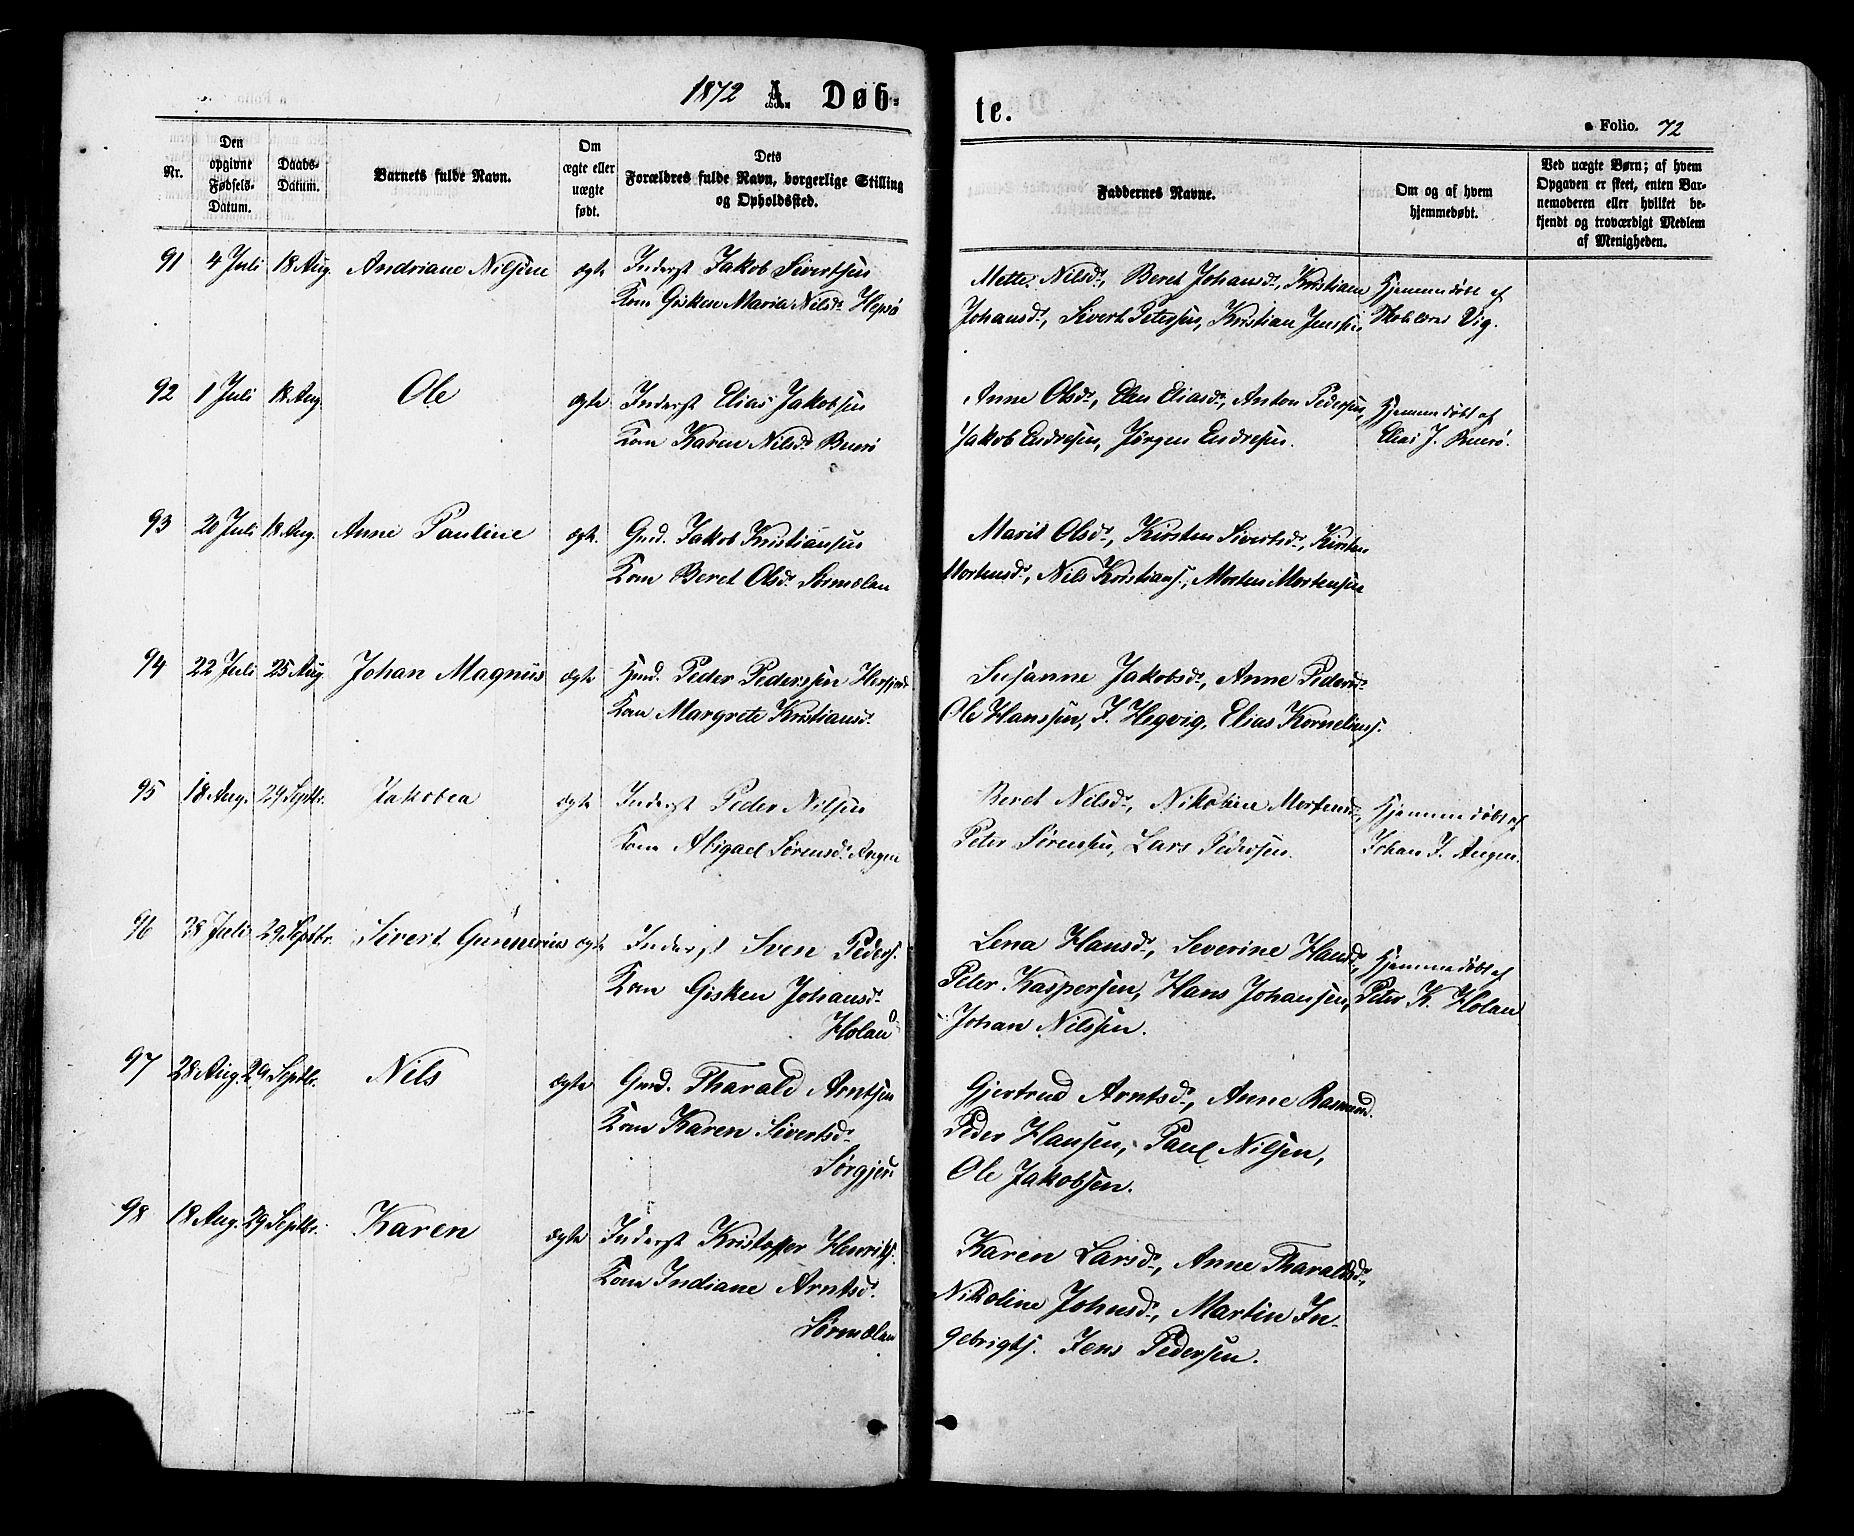 1872 A. Døb-
te.
Folio. 72
Nr.
Den opgivne Fødsels-Datum.
Daabs-Datum.
Barnets fulde Navn.
Om ægte eller uægte født.
Dets Forældres fulde Navn, borgerlige Stilling og Opholdssted.
Faddernes Navne.
Om og af hvem hjemmedøbt.
Ved uægte Børn; af hvem Opgaven er skeet, enten Barnemoderen eller hvilket bekjendt og troværdigt Medlem af Menigheden.
91 4 Juli 18 Aug. Andriane Nilsine ægte Inderst Jakob Sivertsen
Kone Gisken Maria Nilsd. Hepsø
Mette Nilsd., Beret Johansd., Kristiane
Johansd., Sivert Petersen, Kristian Jenssen
Hjemmedøbt af
Vig.
92 1 Juli 18 Aug Ole ægte Inderst Elias Jakobsen
Kone Karen Nilsd. Buerø
Anne Olsd., Elen Eliasd., Anton Pedersen,
Jakob Endresen, Jørgen Endresen.
Hjemmedøbt af
Elias J. Buerø.
93 20 Juli 18 Aug. Anne Pauline ægte. Gmd. Jakob Kristiansen
Kone Beret Olsd. Sørmælan
Marit Olsd., Kirsten Sivertsd., Kirsten
Mortensd., Nils Kristians., Morten Mortensen
94 22 Juli 25 Aug. Johan Magnus ægte Gmd. Peder Pederssen
Kone Margrete Kristiansd.
Susanne Jakobsd., Anne Pedersd.
Ole Hanssen, J. Hegvig, Elias Korneliuss.
95 18 Aug. 29 Septbr. Jakobea ægte Inderst Peder Nilsen
Kone Abigael Sørensd. Angen
Beret Nilsd., Nikoline Mortensd.,
Peter Sørensen, Lars Pedersen.
Hjemmedøbt af
Johan J. Angen.
96 28 Juli 29 Septbr. Sivert Gunnerius ægte Inderst Sven Peders.
Kone Gisken Johansd.
Holan
Lena Hansd., Severine Hansd.,
Peter Kaspersen, Hans Johansen,
Johan Nilssen.
Hjemmedøbt af
Peter K. Holan
97 28 Aug. 29 Septbr. Nils ægte Gmd. Tharald Arntsen
Kone Karen Sivertsd.
Sørgjer
Gjertrud Arntsd., Anne Rasmusd.
Peder Hansen, Paul Nilsen,
Ole Jakobsen.
98 18 Aug. 29 Septbr. Karen ægte Inderst Kristoffer Henriks.
Kone Indiane Arntsd.
Sørmælan
Karen Larsd., Anne Tharaldsd.,
Nikoline Johnsd., Martin In-
gebrigts. Jens Pedersen.